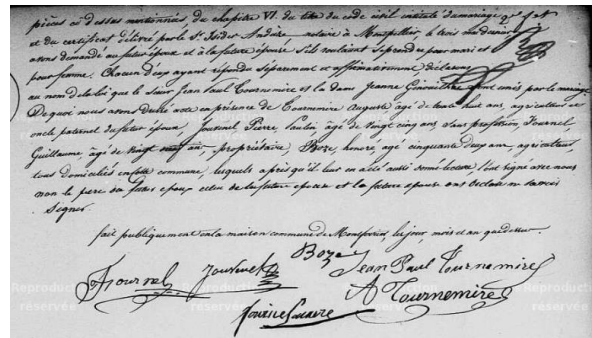 pièces ci dessus mentionnés, du chapitre VI. du titre du code civil intitulé du mariage
et du certificat délivré par le Sr. Isidor notaire à Montpellier, le trois du
avons demandé au futur époux et à la future épouse s'ils veulent se prendre pour mari et
pour femme. Chacun d'eux ayant répondu séparément et affirmativement déclarons
au nom de la loi que le sieur Jean Paul Tournemire et la dame Jeanne sont unis par le mariage.
De quoi nous avons dressé acte en présence de Tournemire Auguste âgé de trente huit ans, agriculteur et
oncle paternel du futur époux, Pierre, Paulin, âgé de vingt cinq ans, sans profession, Fournel
Guillaume, âgé de vingt neuf ans, propriétaire, Boze, honoré, âgé cinquante deux ans, agriculteur
tous domiciliés en cette commune, lesquels après qu'il leur en a été aussi donné lecture, l'ont signé avec nous
non le père du futur époux celui de la future épouse et la future épouse ont déclaré ne savoir
signer.
fait publiquement en la maison commune de les jour, mois et an que dessus.
Boze
Fournel
Jean Paul Tournemire
A Tournemire
Reproduction réservée
Reproduction réservée